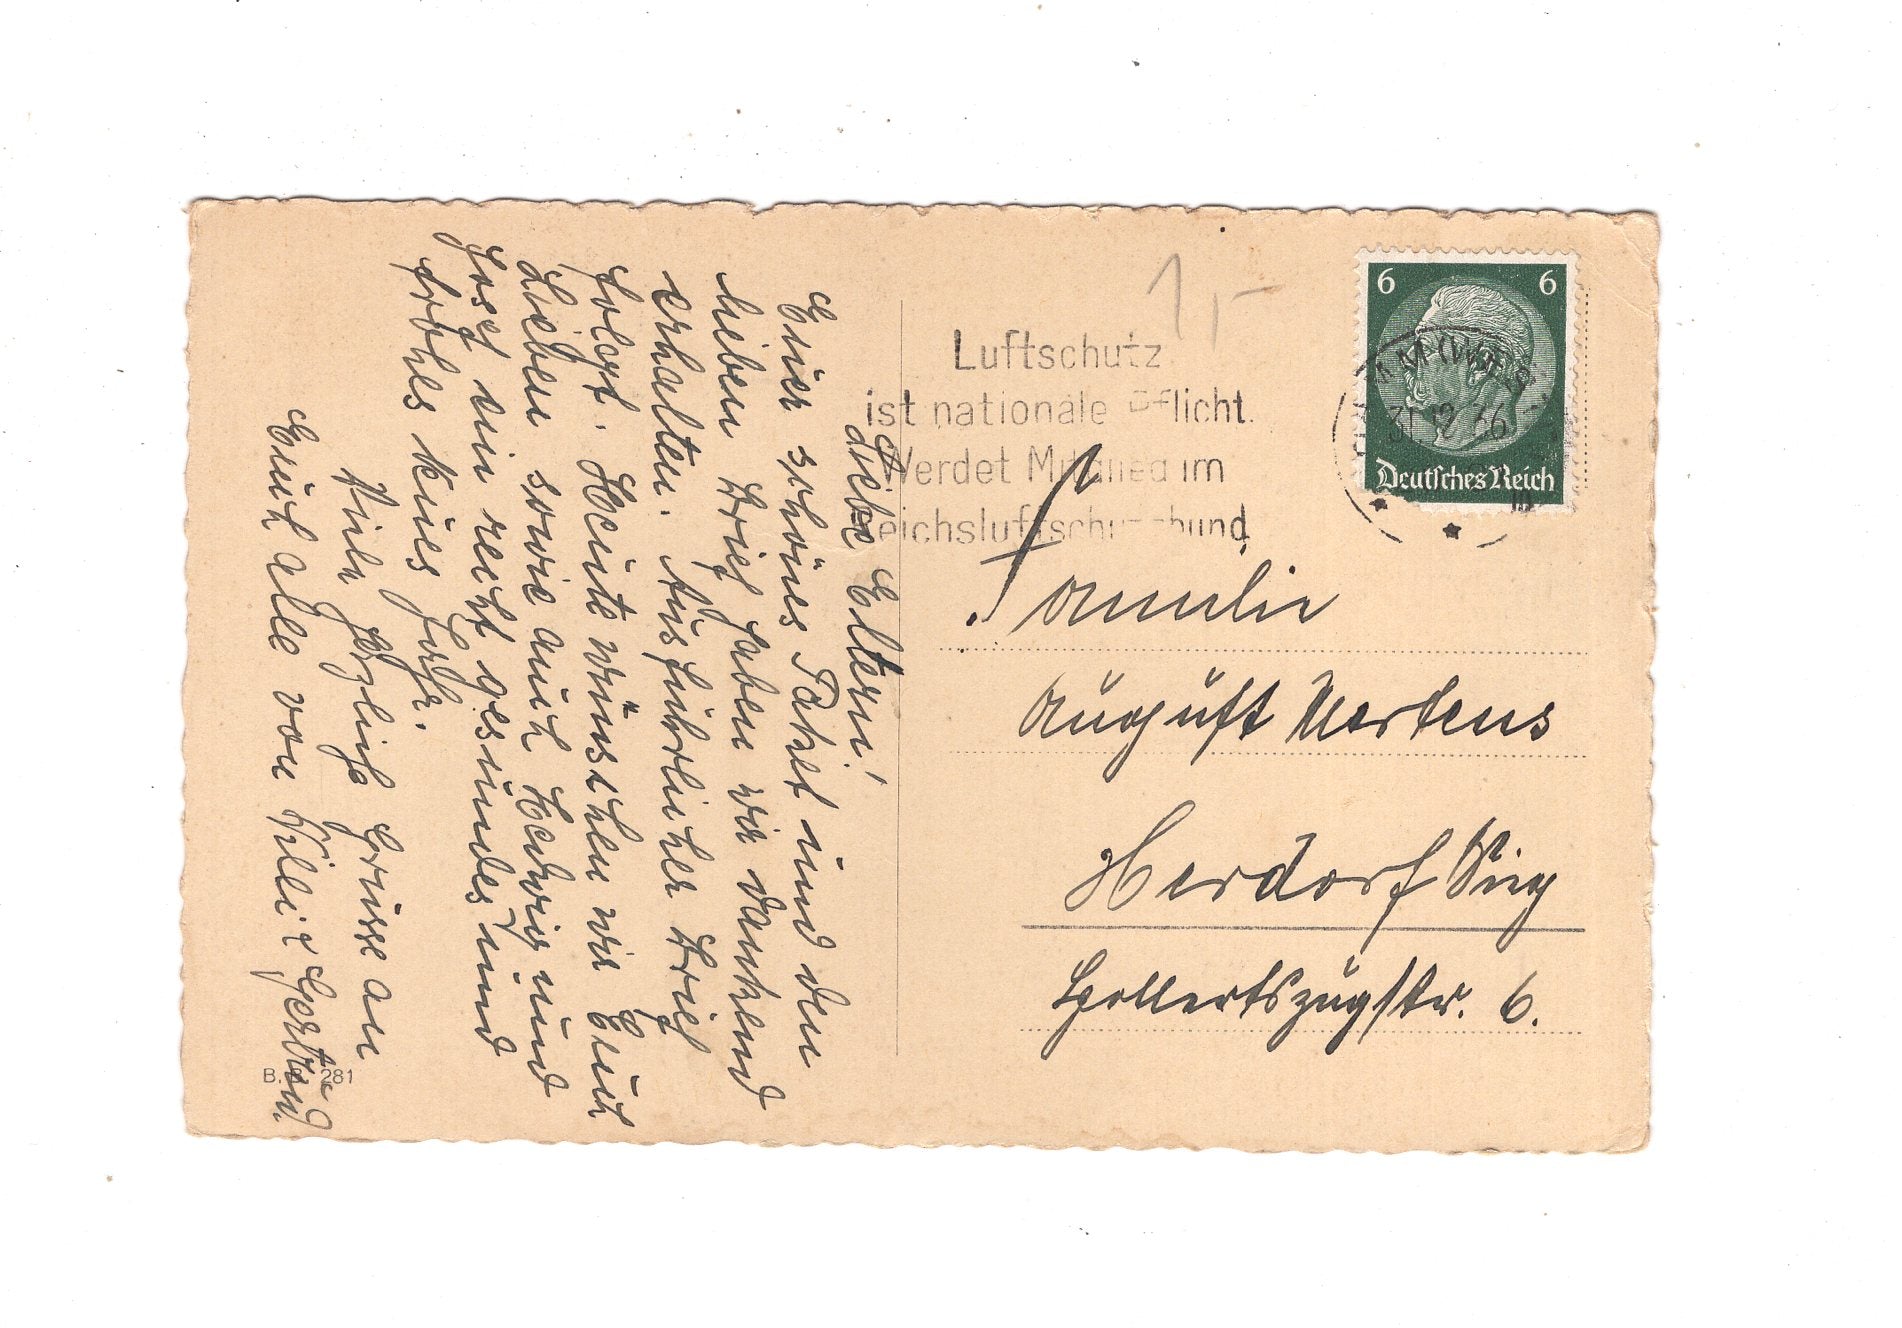 Liebe Eltern!
Euer schönes Paket und den
lieben Brief haben wir dankend
erhalten. Ausführlicher Brief
folgt. Heute wünschen wir Euch
Lieben sowie auch Hedwig und
Josef ein recht gesundes und
frohes neues Jahr.
Viele herzliche Grüsse an
Euch alle von Willi & Gertrud.
B. 281
1,-
Luftschutz
ist nationale Pflicht.
Werdet Mitglied im
Reichsluftschutzbund
6 6
HAMM (WESTF)
31.12.36
Deutsches Reich
Familie
August Mertens
Herdorf Sieg
str. 6.